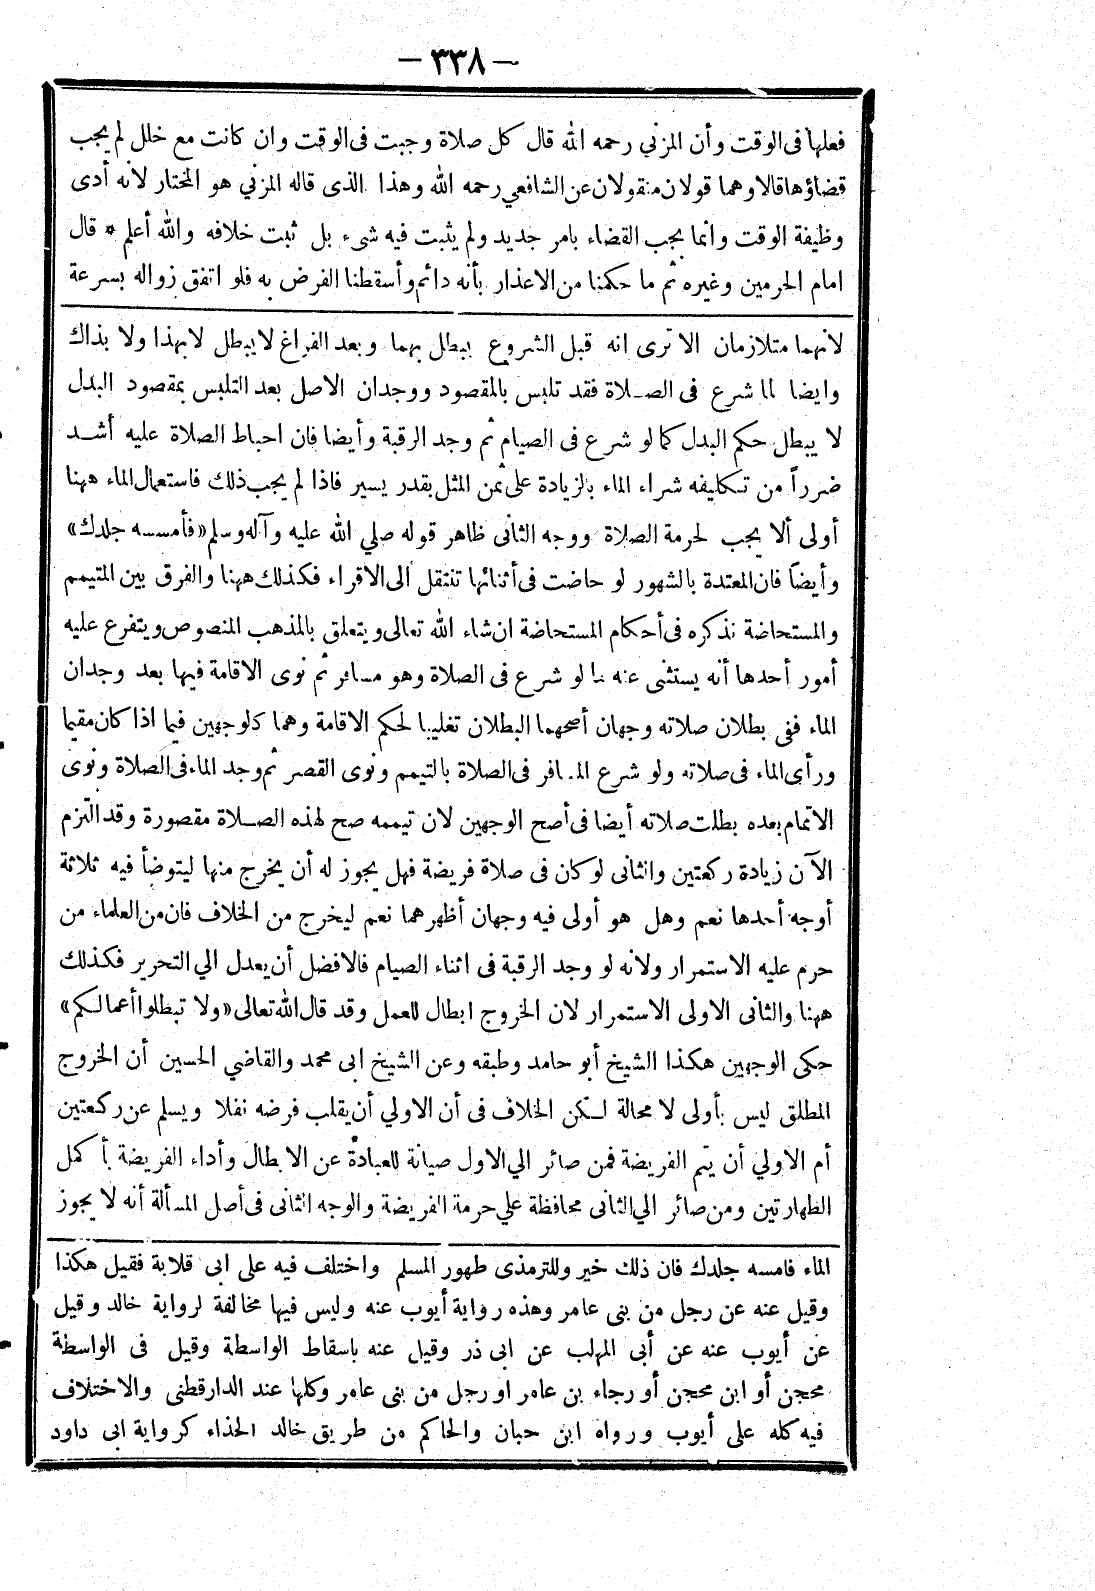 — ٣٣٨ —
فعلها فى الوقت وأن المزني رحمه الله قال كل صلاة وجبت فى الوقت وان كانت مع خلل لم يجب
قضاؤها قالا وهما قولان منقولان عن الشافعي رحمه الله وهذا الذى قاله المزني هو المختار لانه أدى
وظيفة الوقت وانما يجب القضاء بامر جديد ولم يثبت فيه شىء بل ثبت خلافه والله أعلم * قال
امام الحرمين وغيره ثم ما حكمنا من الاعذار بأنه دائم وأسقطنا الفرض به فلو اتفق زواله بسرعة
لانهما متلازمان الا ترى انه قبل الشروع يبطل بهما وبعد الفراغ لا يبطل لا بهذا ولا بذاك
وايضا لما شرع فى الصلاة فقد تلبس بالمقصود ووجدان الاصل بعد التلبس بمقصود البدل
لا يبطل حكم البدل كما لو شرع فى الصيام ثم وجد الرقبة وأيضا فان احباط الصلاة عليه أشد
ضرراً من تكليفه شراء الماء بالزيادة على ثمن المثل بقدر يسير فاذا لم يجب ذلك فاستعمال الماء ههنا
أولى ألا يجب لحرمة الصلاة ووجه الثانى ظاهر قوله صلي الله عليه وآله وسلم «فأمسسه جلدك»
وأيضاً فان المعتدة بالشهور لو حاضت فى أثنائها تنتقل الى الاقراء فكذلك ههنا والفرق بين المتيمم
والمستحاضة نذكره فى أحكام المستحاضة ان شاء الله تعالى ويتعلق بالمذهب المنصوص ويتفرع عليه
أمور أحدها أنه يستثنى عنه ما لو شرع فى الصلاة وهو مسافر ثم نوى الاقامة فيها بعد وجدان
الماء ففى بطلان صلاته وجهان أصحهما البطلان تغليبا لحكم الاقامة وهما كالوجهين فيما اذا كان مقيما
ورأى الماء فى صلاته ولو شرع المسافر فى الصلاة بالتيمم ونوى القصر ثم وجد الماء فى الصلاة ونوى
الاتمام بعده بطلت صلاته أيضا فى أصح الوجهين لان تيممه صح لهذه الصلاة مقصورة وقد التزم
الآن زيادة ركعتين والثانى لو كان فى صلاة فريضة فهل يجوز له أن يخرج منها ليتوضأ فيه ثلاثة
أوجه أحدها نعم وهل هو أولى فيه وجهان أظهرهما نعم ليخرج من الخلاف فان من العلماء من
حرم عليه الاستمرار ولانه لو وجد الرقبة فى اثناء الصيام فالافضل أن يعدل الي التحرير فكذلك
ههنا والثانى الاولى الاستمرار لان الخروج ابطال للعمل وقد قال الله تعالى «ولا تبطلوا أعمالكم»
حكى الوجهين هكذا الشيخ أبو حامد وطبقه وعن الشيخ ابى محمد والقاضي الحسين أن الخروج
المطلق ليس بأولى لا محالة لكن الخلاف فى أن الاولي أن يقلب فرضه نفلا ويسلم عن ركعتين
أم الاولي أن يتم الفريضة فمن صائر الي الاول صيانة للعبادة عن الابطال وأداء الفريضة بأكمل
الطهارتين ومن صائر الي الثانى محافظة علي حرمة الفريضة والوجه الثانى فى أصل المسألة أنه لا يجوز
الماء فامسه جلدك فان ذلك خير وللترمذى طهور المسلم واختلف فيه على ابى قلابة فقيل هكذا
وقيل عنه عن رجل من بنى عامر وهذه رواية أيوب عنه وليس فيها مخالفة لرواية خالد وقيل
عن أيوب عنه عن أبى المهلب عن ابى ذر وقيل عنه باسقاط الواسطة وقيل فى الواسطة
محجن أو ابن محجن أو رجاء بن عامر او رجل من بنى عامر وكلها عند الدارقطنى والاختلاف
فيه كله على أيوب ورواه ابن حبان والحاكم من طريق خالد الحذاء كرواية ابى داود